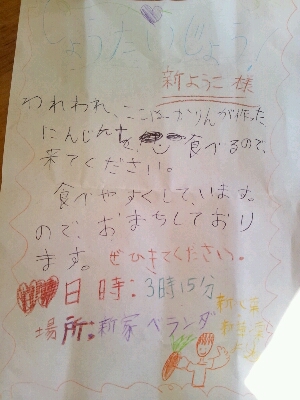 しょうたいじょう
新ようこ 様
われわれ、ここは、かりんが作った
にんじんを 食べるので、
来てください。
食べやすくしています。
ので、おまちしており
ます。ぜひきてください。
日時:3時15分
場所:新家ベランダ